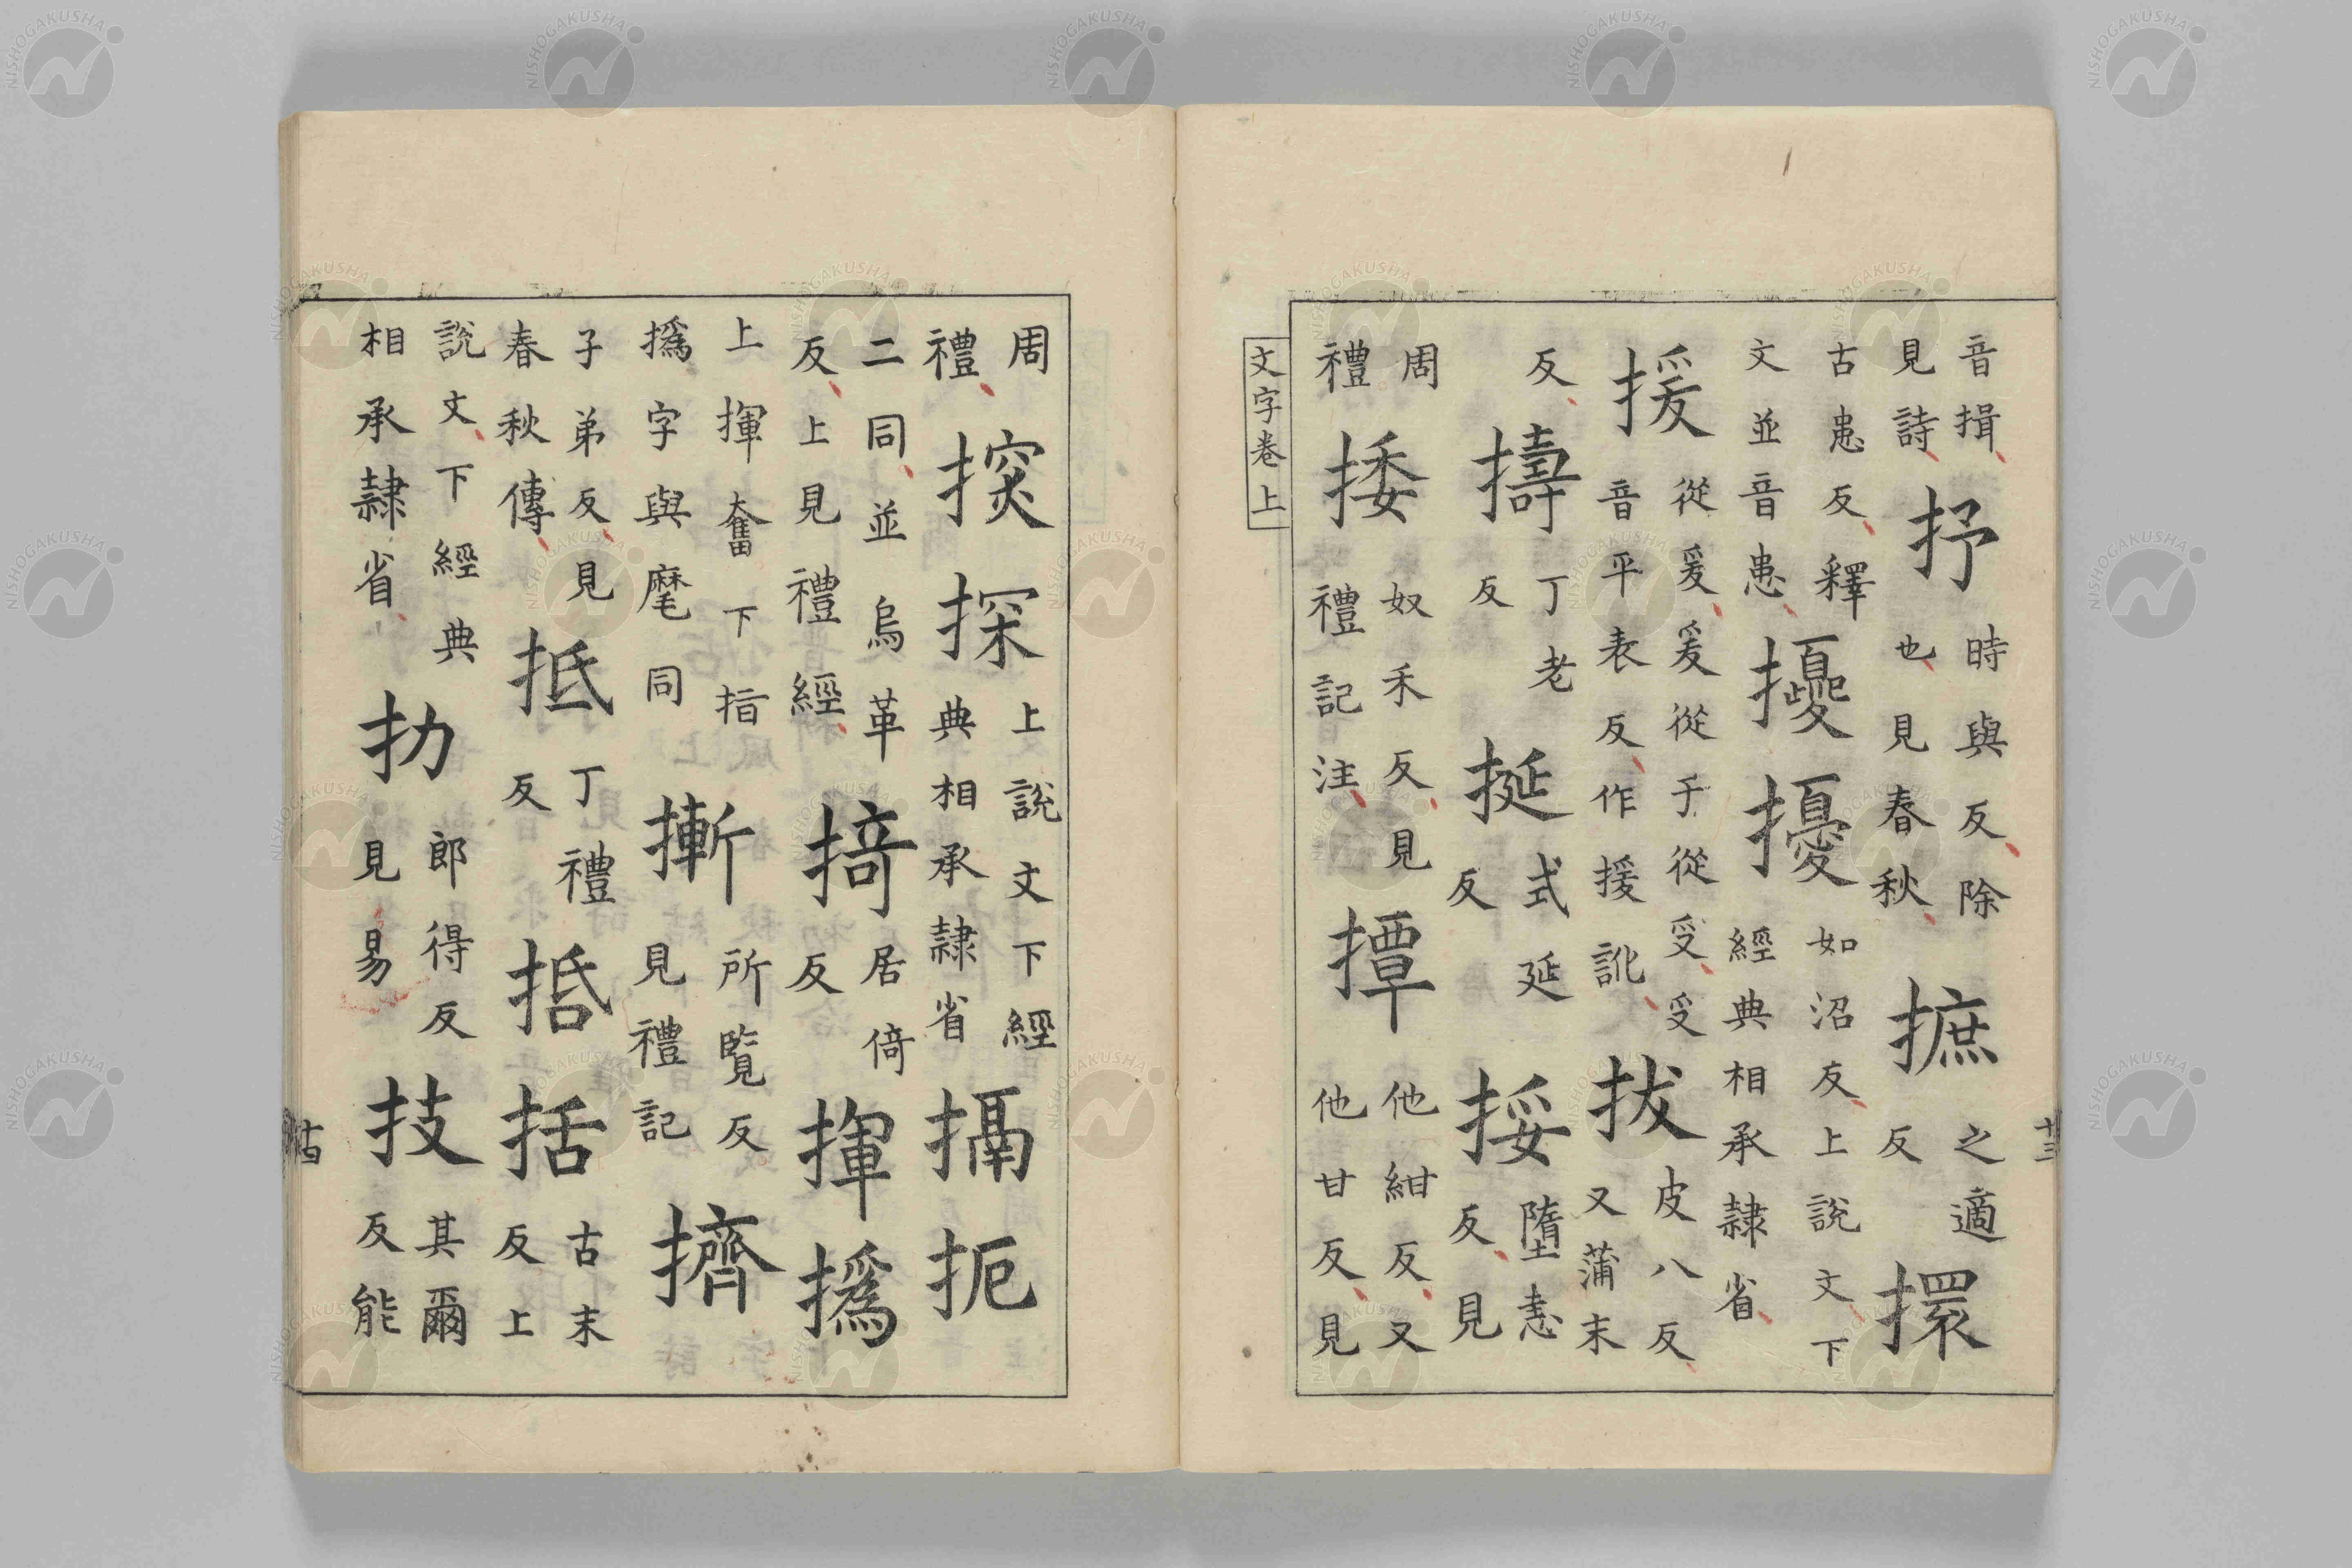 廿三
音揖見詩抒時與反除也見春秋摭之適反擐
古患反釋文並音患擾擾如沼反上說文下經典相承隷省
援從爰爰從于從受受音平表反作援訛拔皮八反又蒲末
反擣丁老反挻式延反挼墮恚反見
周禮捼奴禾反見禮記注撢他紺反又他甘反見
文字卷上
周禮㨝探上說文下經典相承隷省搹扼
二同並烏革反上見禮經掎居倚反揮撝
上揮奮下指撝字與麾同摲所覽反見禮記擠
子弟反見春秋傳抵丁禮反𢬸括古末反上
說文下經典相承隷省扐郎得反見易技其爾反能